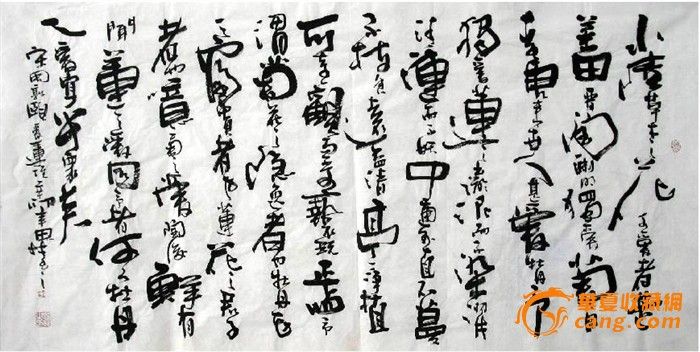 水陸草木之花可愛者甚
蕃晉陶淵明獨愛菊
自李唐來世人甚愛牡丹予
獨愛蓮之出淤泥而不染濯
清漣而不妖中通外直不蔓
不枝香遠益清亭亭淨植
可遠觀而不可褻玩焉予
謂菊花之隱逸者也牡丹花
之富貴者也蓮花之君子
者也噫菊之愛陶後鮮有
聞蓮之愛同予者何人牡丹
之愛宜乎眾矣
宋周敦頤愛蓮說
華夏收藏網
cang.com